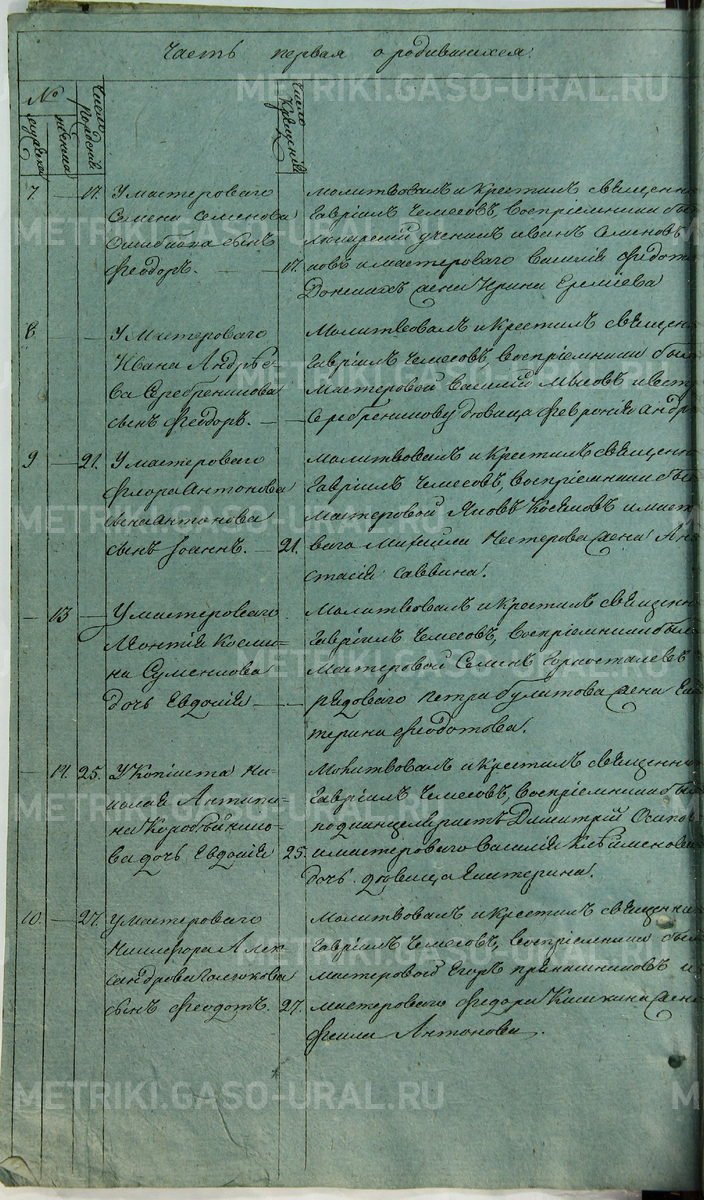 Часть первая о родившихся.
№
мужеска
женска
Число рождения
Число Крещения
7. 17. У мастероваго
Семена Семенова
сынъ
Феодоръ. 17.
Молитвовалъ и Крестилъ священни
Гавріилъ Чемесовъ, воспріемники бы
ученикъ Иванъ Семеновъ
и мастероваго Василія Федото
жена Ирина Еремѣева
8 У Мастероваго
Ивана Андрѣе-
ва Серебреникова
сынъ Феодоръ.
Молитвовалъ и Крестилъ священ
Гавріилъ Чемесовъ воспріемники был
Мастеровой Василій Мысовъ и
Серебреникову дѣвица Февронія Андр
9 21. У мастероваго
Флора Антонова
Антонова
сынъ Іоаннъ. 21.
Молитвовалъ и Крестилъ священни
Гавріилъ Чемесовъ, воспріемники бы
Мастеровой Яковъ Косымовъ и масте
ваго Михаила Нестерова жена Ана
стасія Саввина.
13 У мастероваго
Леонтія Косми-
на Суменкова
дочь Евдокія
Молитвовалъ и Крестилъ священни
Гавріилъ Чемесовъ, воспріемники были
Мастеровой Семенъ Горносталевъ
рядоваго Петра Булатова жена Ека
терина Феодотова.
14. 25. У Копіиста Ни-
колая Антипи-
на Коробѣйнико-
ва дочь Евдокія 25.
Молитвовалъ и Крестилъ священни
Гавріилъ Чемесовъ, воспріемники бы
подканцеляристъ Димитрій Осипо
и мастероваго Василія
дочь дѣвица Екатерина.
10. 27. У мастероваго
Никифора Алек-
сандрова Голюкова
сынъ Феодотъ. 27.
Молитвовалъ и Крестилъ священни
Гавріилъ Чемесовъ, воспріемники бы
мастеровой Егоръ Пряничниковъ и
мастероваго Федора Кишкина жена
Фекла Антонова.
METRIKI.GASO-URAL.RU
METRIKI.GASO-URAL.RU
METRIKI.GASO-URAL.RU
METRIKI.GASO-URAL.RU
METRIKI.GASO-URAL.RU
METRIKI.GASO-URAL.RU
METRIKI.GASO-URAL.RU
METRIKI.GASO-URAL.RU